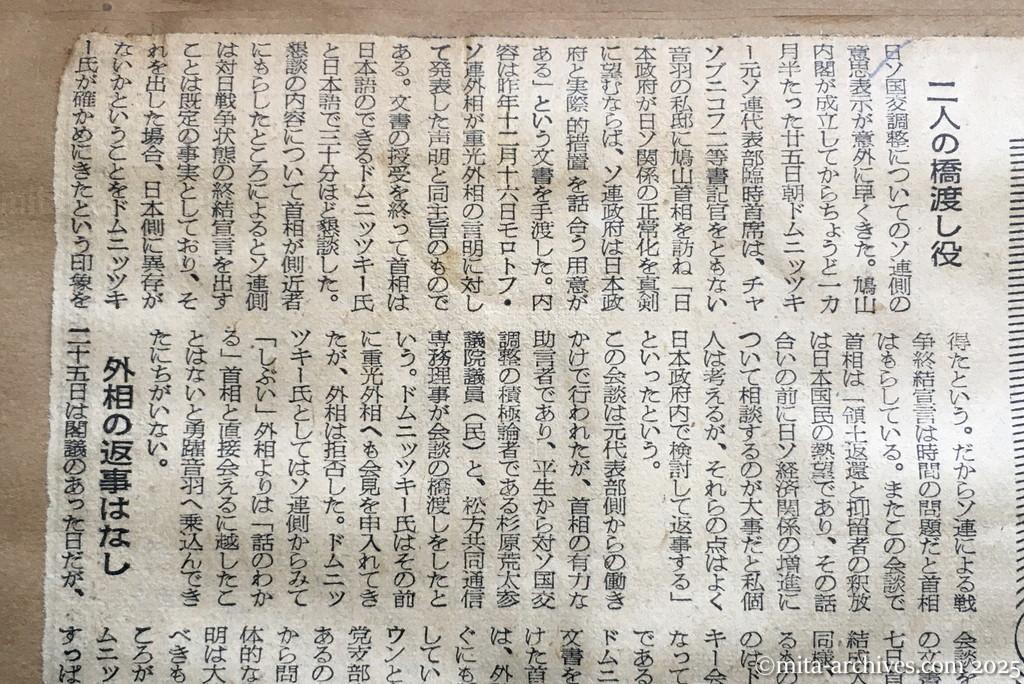 二人の橋渡し役
日ソ国交調整についてのソ連側の
意思表示が意外に早くきた。鳩山
内閣が成立してからちょうど一カ
月半たった廿五日朝ドムニッツキ
ー元ソ連代表部臨時首席は、チャ
ソブニコフ二等書記官をともない
音羽の私邸に鳩山首相を訪ね「日
本政府が日ソ関係の正常化を真剣
に望むならば、ソ連政府は日本政
府と実際的措置を話合う用意が
ある」という文書を手渡した。内
容は昨年十二月十六日モロトフ・
ソ連外相が重光外相の言明に対し
て発表した声明と同主旨のもので
ある。文書の授受を終って首相は
日本語のできるドムニッツキー氏
と日本語で三十分ほど懇談した。
懇談の内容について首相が側近者
にもらしたところによるとソ連側
は対日戦争状態の終結宣言を出す
ことは既定の事実としており、そ
れを出した場合、日本側に異存が
ないかということをドムニッツキ
ー氏が確かめにきたという印象を
得たという。だからソ連による戦
争終結宣言は時間の問題だと首相
はもらしている。またこの会談で
首相は「領土返還と抑留者の釈放
は日本国民の熱望であり、その話
合いの前に日ソ経済関係の増進に
ついて相談するのが大事だと私個
人は考えるが、それらの点はよく
日本政府内で検討して返事する」
といったという。
この会談は元代表部側からの働き
かけで行われたが、首相の有力な
助言者であり、平生から対ソ国交
調整の積極論者である杉原荒太参
議院議員（民）と、松方共同通信
専務理事が会談の橋渡しをしたと
いう。ドムニッツキー氏はその前
に重光外相へも会見を申入れてき
たが、外相は拒否した。ドムニッ
ツキー氏としてはソ連側からみて
「しぶい」外相よりは「話のわか
る」首相と直接会えるに越したこ
とはないと勇躍音羽へ乗込んでき
たにちがいない。
外相の返事はなし
二十五日は閣議のあった日だが、
会談を
の文書
七日首
結成大
同様、
るもの
のは、ド
キー会
なって
である
ドムニ
文書を
けた首
は、外
ぐにも
してい
ウンと
党支部
あるの
から問
体的な
明は大
べきも
ころが
ムニッ
すっぱ
©mita-archives.com 2025